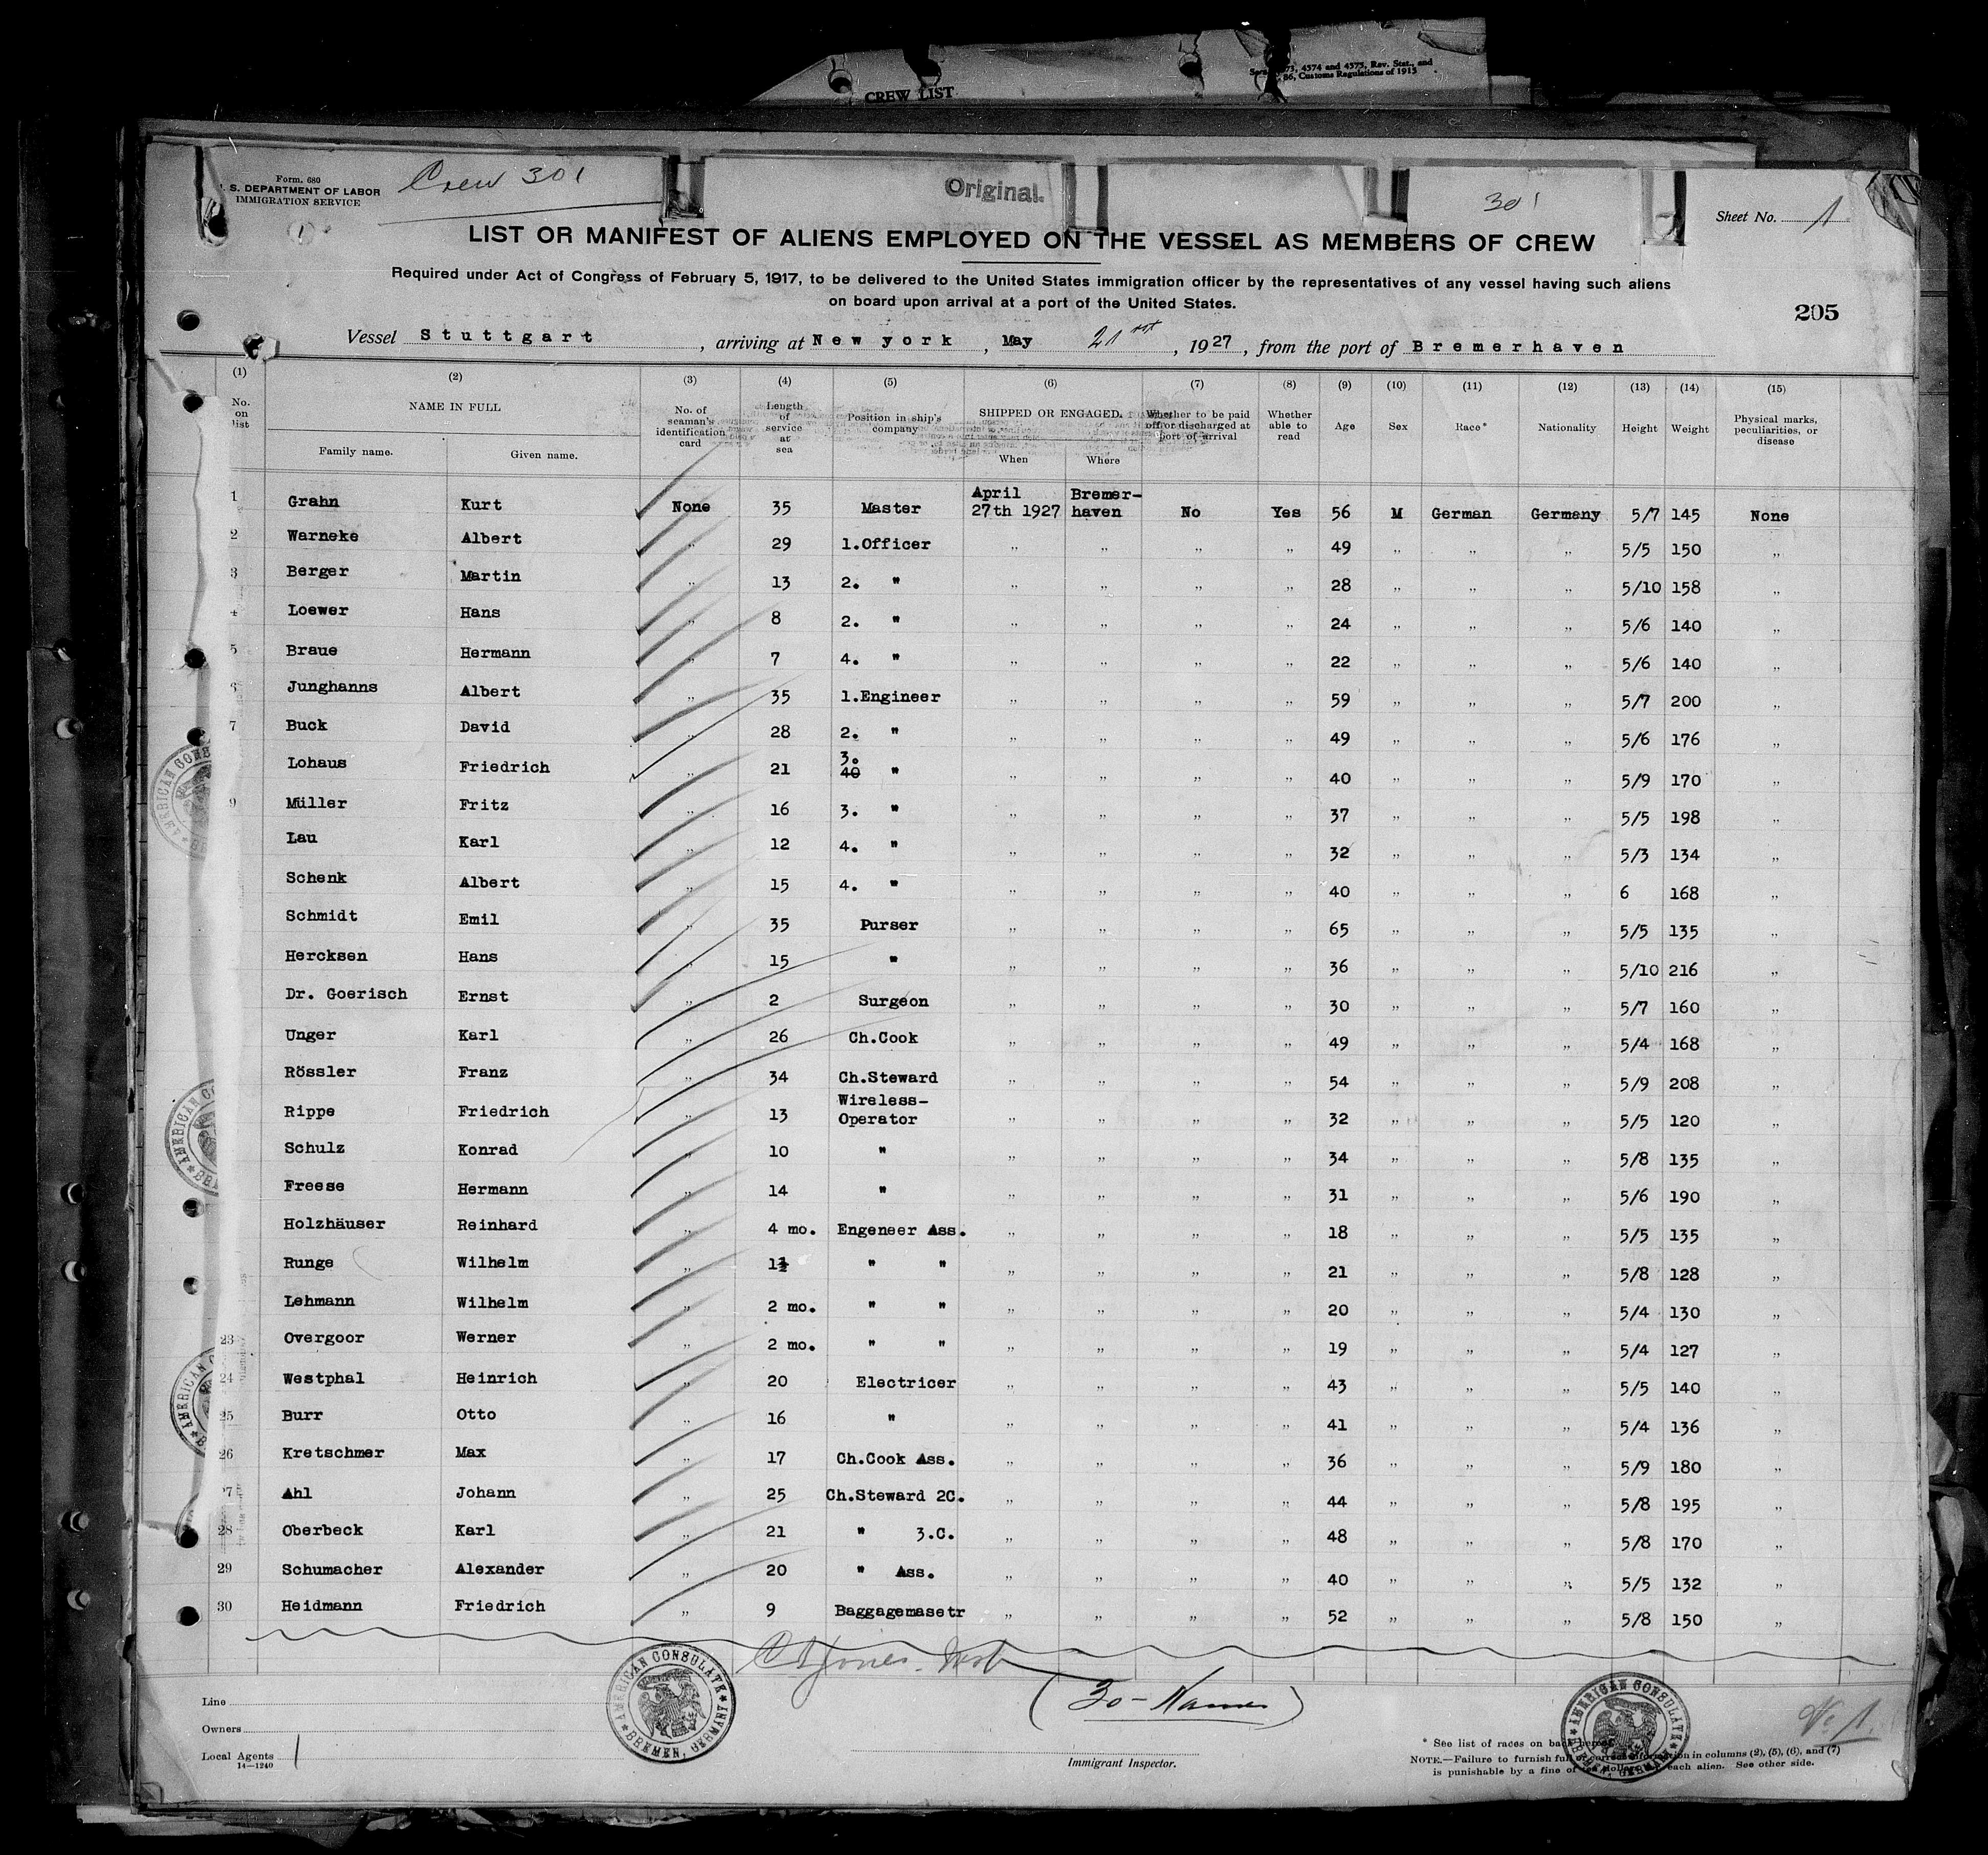 CREW LIST
4574 and 4575, Rev. Stat., and
86, Customs Regulations of 1915
Form. 680
S. DEPARTMENT OF LABOR
IMMIGRATION SERVICE
Crew 301
Original.
301
Sheet No. 1
LIST OR MANIFEST OF ALIENS EMPLOYED ON THE VESSEL AS MEMBERS OF CREW
Required under Act of Congress of February 5, 1917, to be delivered to the United States immigration officer by the representatives of any vessel having such aliens
on board upon arrival at a port of the United States.
205
Vessel Stuttgart, arriving at New york, May 21st, 1927, from the port of Bremerhaven
(1) (2) (3) (4) (5) (6) (7) (8) (9) (10) (11) (12) (13) (14) (15)
No. on list NAME IN FULL Family name. Given name. No. of seaman's identification card Length of service at sea Position in ship's company SHIPPED OR ENGAGED. When Where Whether to be paid off or discharged at port of arrival Whether able to read Age Sex Race* Nationality Height Weight Physical marks, peculiarities, or disease
1 Grahn Kurt None 35 Master April 27th 1927 Bremer-haven No Yes 56 M German Germany 5/7 145 None
2 Warneke Albert " 29 1.Officer " " " " 49 " " " 5/5 150 "
3 Berger Martin " 13 2. " " " " " 28 " " " 5/10 158 "
4 Loewer Hans " 8 2. " " " " " 24 " " " 5/6 140 "
5 Braue Hermann " 7 4. " " " " " 22 " " " 5/6 140 "
6 Junghanns Albert " 35 1.Engineer " " " " 59 " " " 5/7 200 "
7 Buck David " 28 2. " " " " " 49 " " " 5/6 176 "
Lohaus Friedrich " 21 3. 40 " " " " " 40 " " " 5/9 170 "
9 Müller Fritz " 16 3. " " " " " 37 " " " 5/5 198 "
Lau Karl " 12 4. " " " " " 32 " " " 5/3 134 "
Schenk Albert " 15 4. " " " " " 40 " " " 6 168 "
Schmidt Emil " 35 Purser " " " " 65 " " " 5/5 135 "
Hercksen Hans " 15 " " " " " 36 " " " 5/10 216 "
Dr. Goerisch Ernst " 2 Surgeon " " " " 30 " " " 5/7 160 "
Unger Karl " 26 Ch.Cook " " " " 49 " " " 5/4 168 "
Rössler Franz " 34 Ch.Steward " " " " 54 " " " 5/9 208 "
Rippe Friedrich " 13 Wireless-Operator " " " " 32 " " " 5/5 120 "
Schulz Konrad " 10 " " " " " 34 " " " 5/8 135 "
Freese Hermann " 14 " " " " " 31 " " " 5/6 190 "
Holzhäuser Reinhard " 4 mo. Engeneer Ass. " " " " 18 " " " 5/5 135 "
Runge Wilhelm " 1½ " " " " " " 21 " " " 5/8 128 "
Lehmann Wilhelm " 2 mo. " " " " " " 20 " " " 5/4 130 "
23 Overgoor Werner " 2 mo. " " " " " " 19 " " " 5/4 127 "
24 Westphal Heinrich " 20 Electricer " " " " 43 " " " 5/5 140 "
25 Burr Otto " 16 " " " " " 41 " " " 5/4 136 "
26 Kretschmer Max " 17 Ch.Cook Ass. " " " " 36 " " " 5/9 180 "
27 Ahl Johann " 25 Ch.Steward 2C. " " " " 44 " " " 5/8 195 "
28 Oberbeck Karl " 21 " 3.C. " " " " 48 " " " 5/8 170 "
29 Schumacher Alexander " 20 " Ass. " " " " 40 " " " 5/5 132 "
30 Heidmann Friedrich " 9 Baggagemasetr " " " " 52 " " " 5/8 150 "
(30 - Names)
Line
Owners
Local Agents
14—1240
AMERICAN CONSULATE BREMEN, GERMANY
Immigrant Inspector.
AMERICAN CONSULATE BREMEN, GERMANY
No 1.
* See list of races on back hereof.
NOTE.—Failure to furnish full or correct information in columns (2), (5), (6), and (7)
is punishable by a fine of ten dollars for each alien. See other side.